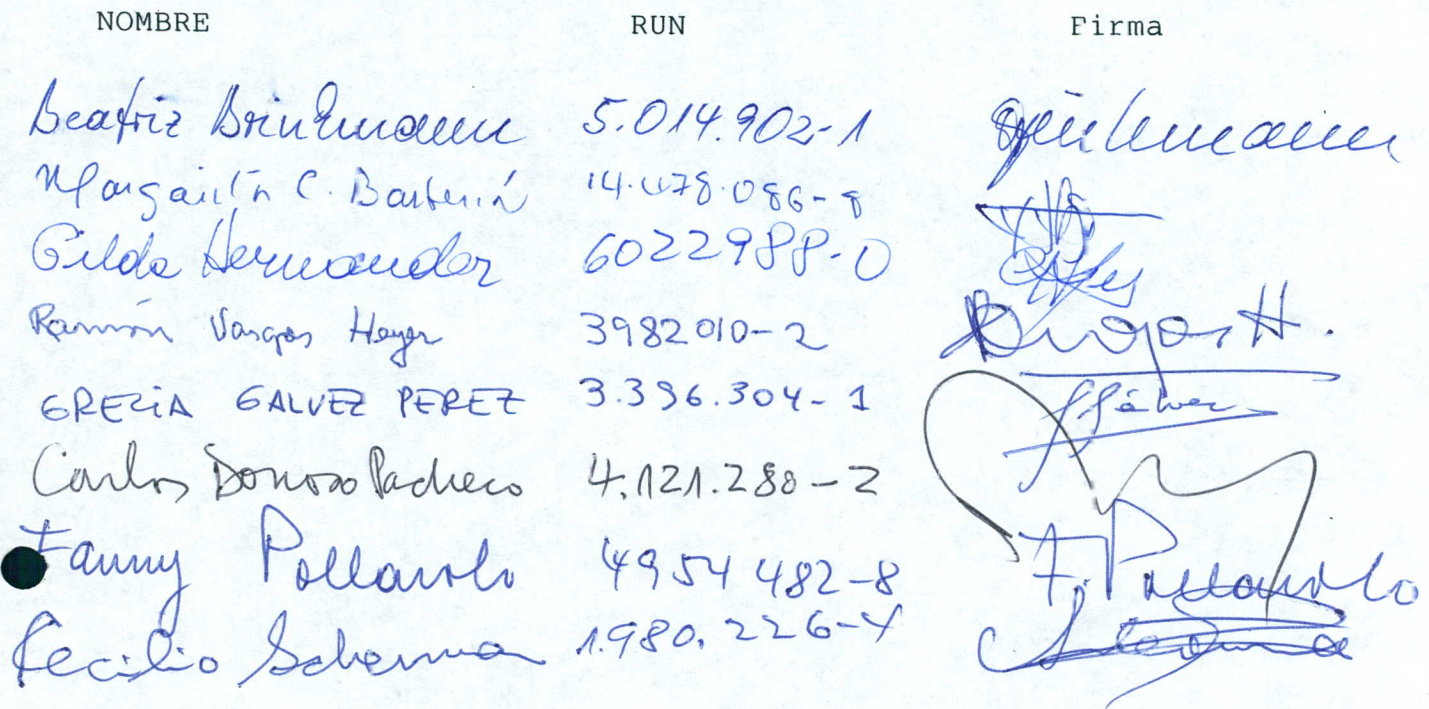 NOMBRE RUN Firma
Beatriz Brinkmann 5.014.902-1 Brinkmann
Margarita C. Barberán 14.478.086-8
Gilda Hernandez 6022988-0
Ramón Vargas Heyer 3982010-2 RVargas H.
GRECIA GALVEZ PEREZ 3.396.304-1 GGálvez
Carlos Donoso Pacheco 4.121.280-2
Fanny Pollarolo 4954482-8 F. Pollarolo
Cecilio Scherman 1.980.226-4